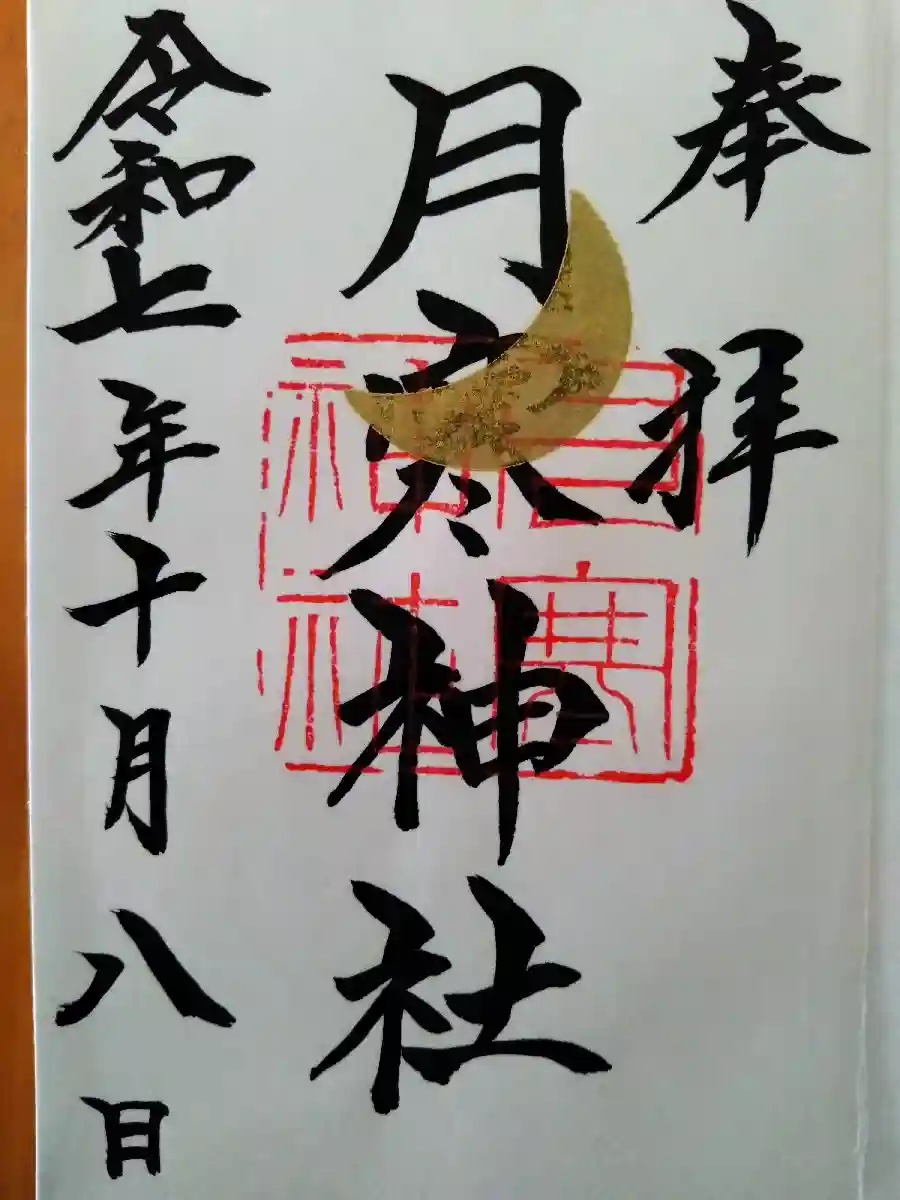 奉拝
月寒神社
令和七年十月八日
月寒神社